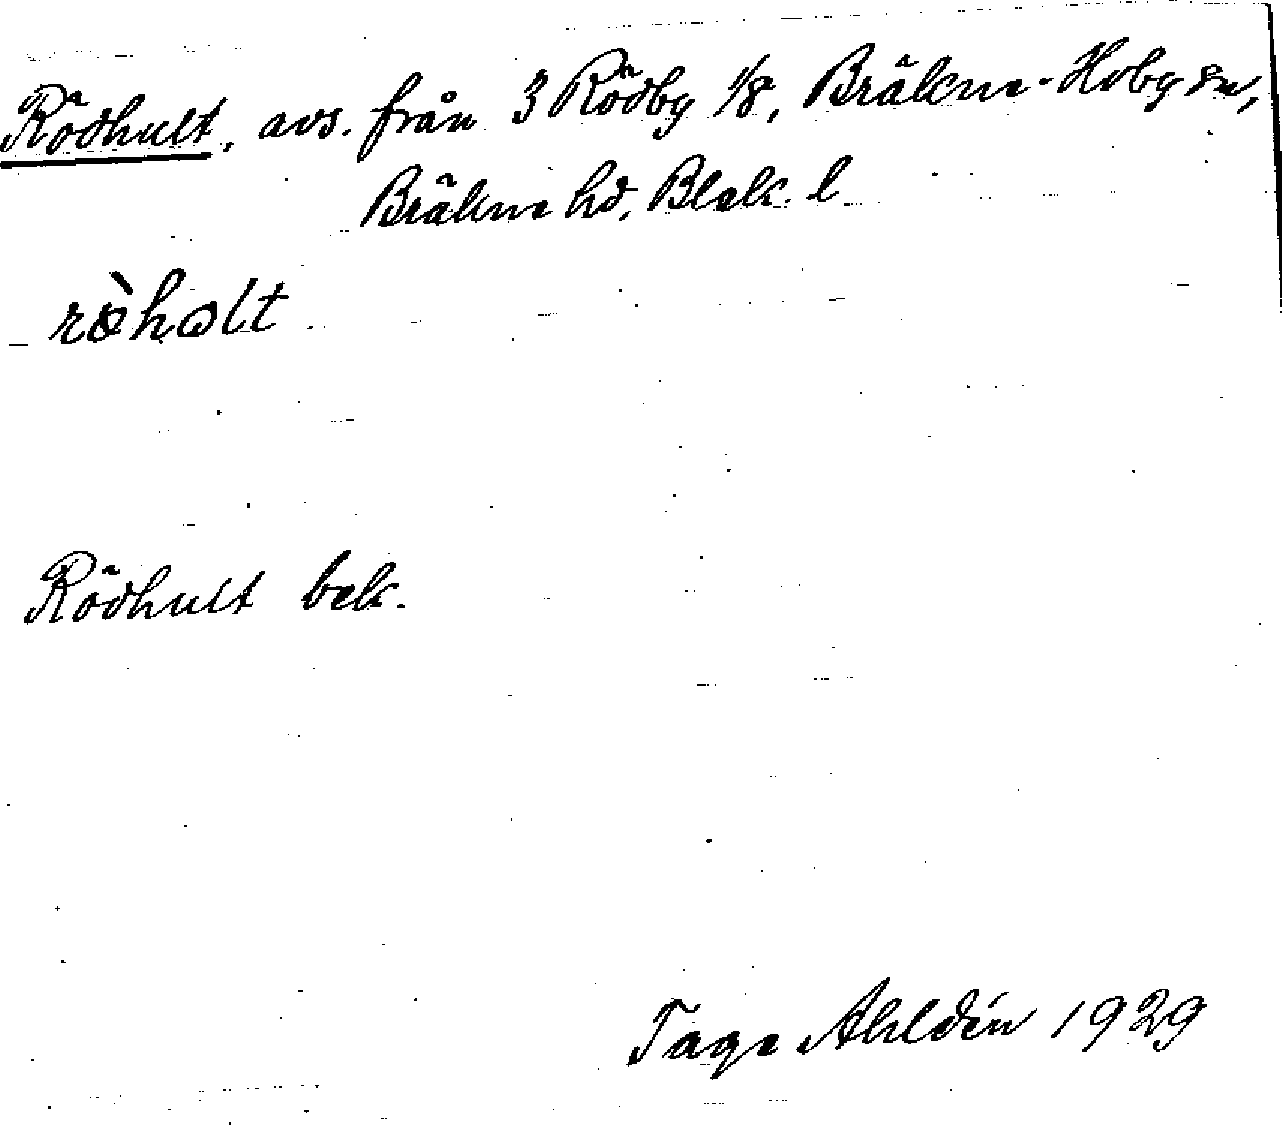 Rödhult, avs. från 3 Rödby 1/8, Bräkne-Hoby sn,
Bräkne hd, Blek. l
rö̀hɔlt
Rödhult bek.
Tage Ahldén 1929